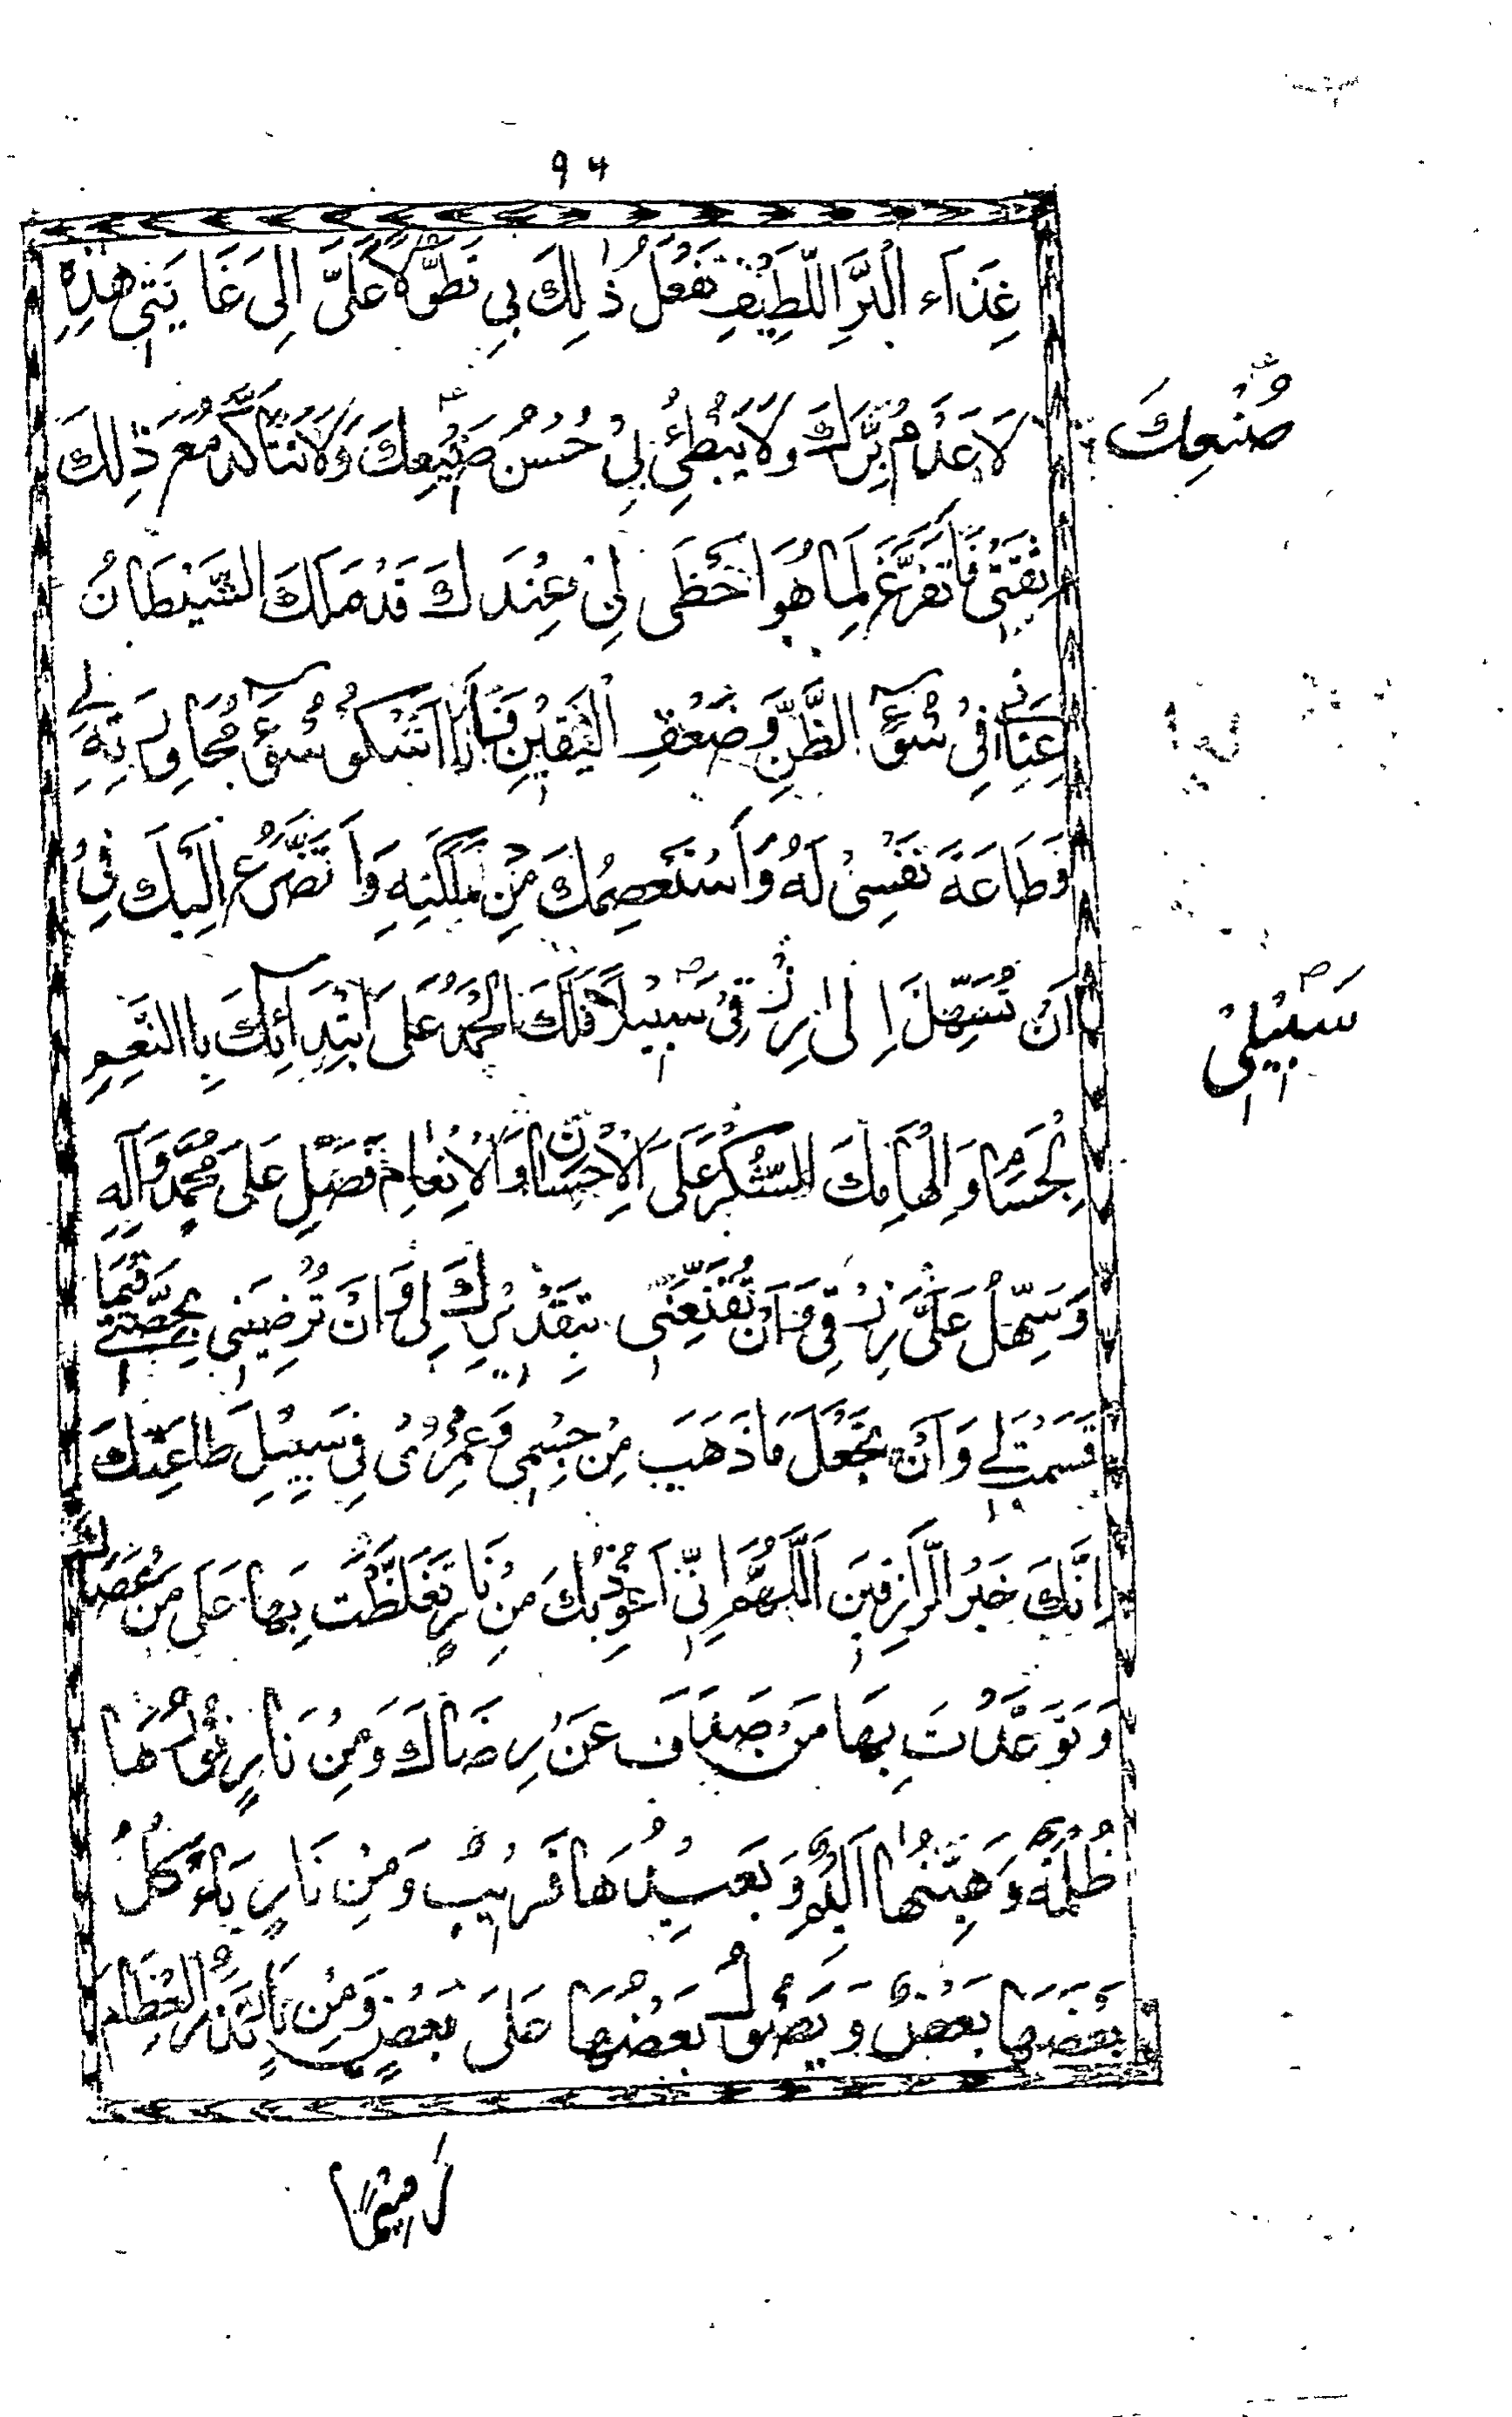 ٩٤
غِذَاءَ الْبَرِّ اللَّطِيْفِ تَفْعَلُ ذٰلِكَ بِي تَطَوُّلًا عَلَيَّ اِلٰى غَايَتِي هٰذِهِ
لَا عَدْمُ بِرَّكَ وَلَا يُبْطِئُ بِيْ حُسْنُ صَنِيْعِكَ وَلَا تَتَأَكَّدُ مَعَ ذٰلِكَ
صُنْعِكَ
ثِقَتِيْ فَاَتَفَرَّغَ لِمَا هُوَ اَحْظٰى لِيْ عِنْدَكَ قَدْ مَلَكَ الشَّيْطَانُ
عِنَانِي فِيْ سُوْٓءِ الظَّنِّ وَضَعْفِ الْيَقِيْنِ فَاَنَا اَشْكُوْ سُوْٓءَ مُجَاوِرَتِهٖ لِي
وَطَاعَةَ نَفْسِيْ لَهُ وَاَسْتَعْصِمُكَ مِنْ مَلَكَتِهِ وَاَتَضَرَّعُ اِلَيْكَ فِيْ
اَنْ تُسَهِّلَ اِلٰى رِزْقِيْ سَبِيْلًا فَلَكَ الْحَمْدُ عَلَى ابْتِدَآئِكَ بِاالنِّعَمِ
سَبِيْلِيْ
الْجِسَامِ وَاِلْهَامِكَ الشُّكْرَ عَلَى الْاِحْسَانِ وَالْاِنْعَامِ فَصَلِّ عَلٰى مُحَمَّدٍ وَاٰلِهِ
وَسَهِّلْ عَلَيَّ رِزْقِي وَاَنْ تُقَنِّعَنِي بِتَقْدِيْرِكَ لِي وَاَنْ تُرْضِيَنِي بِحِصَّتِي فِيْمَا
قَسَمْتَ لِي وَاَنْ تَجْعَلَ مَا ذَهَبَ مِنْ جِسْمِي وَعُمْرِيْ فِي سَبِيْلِ طَاعَتِكَ
اِنَّكَ خَيْرُ الرَّازِقِيْنَ اَللّٰهُمَّ اِنِّي اَعُوْذُ بِكَ مِنْ نَارٍ تَغَلَّظْتَ بِهَا عَلٰى مَنْ عَصَاكَ
وَتَوَعَّدْتَ بِهَا مَنْ صَدَفَ عَنْ رِضَاكَ وَمِنْ نَارٍ نُوْرُهَا
ظُلْمَةٌ وَهَيِّنُهَا اَلِيْمٌ وَبَعِيْدُهَا قَرِيْبٌ وَمِنْ نَارٍ يَاْكُلُ
بَعْضَهَا بَعْضٌ وَيَصُوْلُ بَعْضُهَا عَلٰى بَعْضٍ وَمِنْ نَارٍ تَذَرُ الْعِظَامَ
رَمِيْمًا